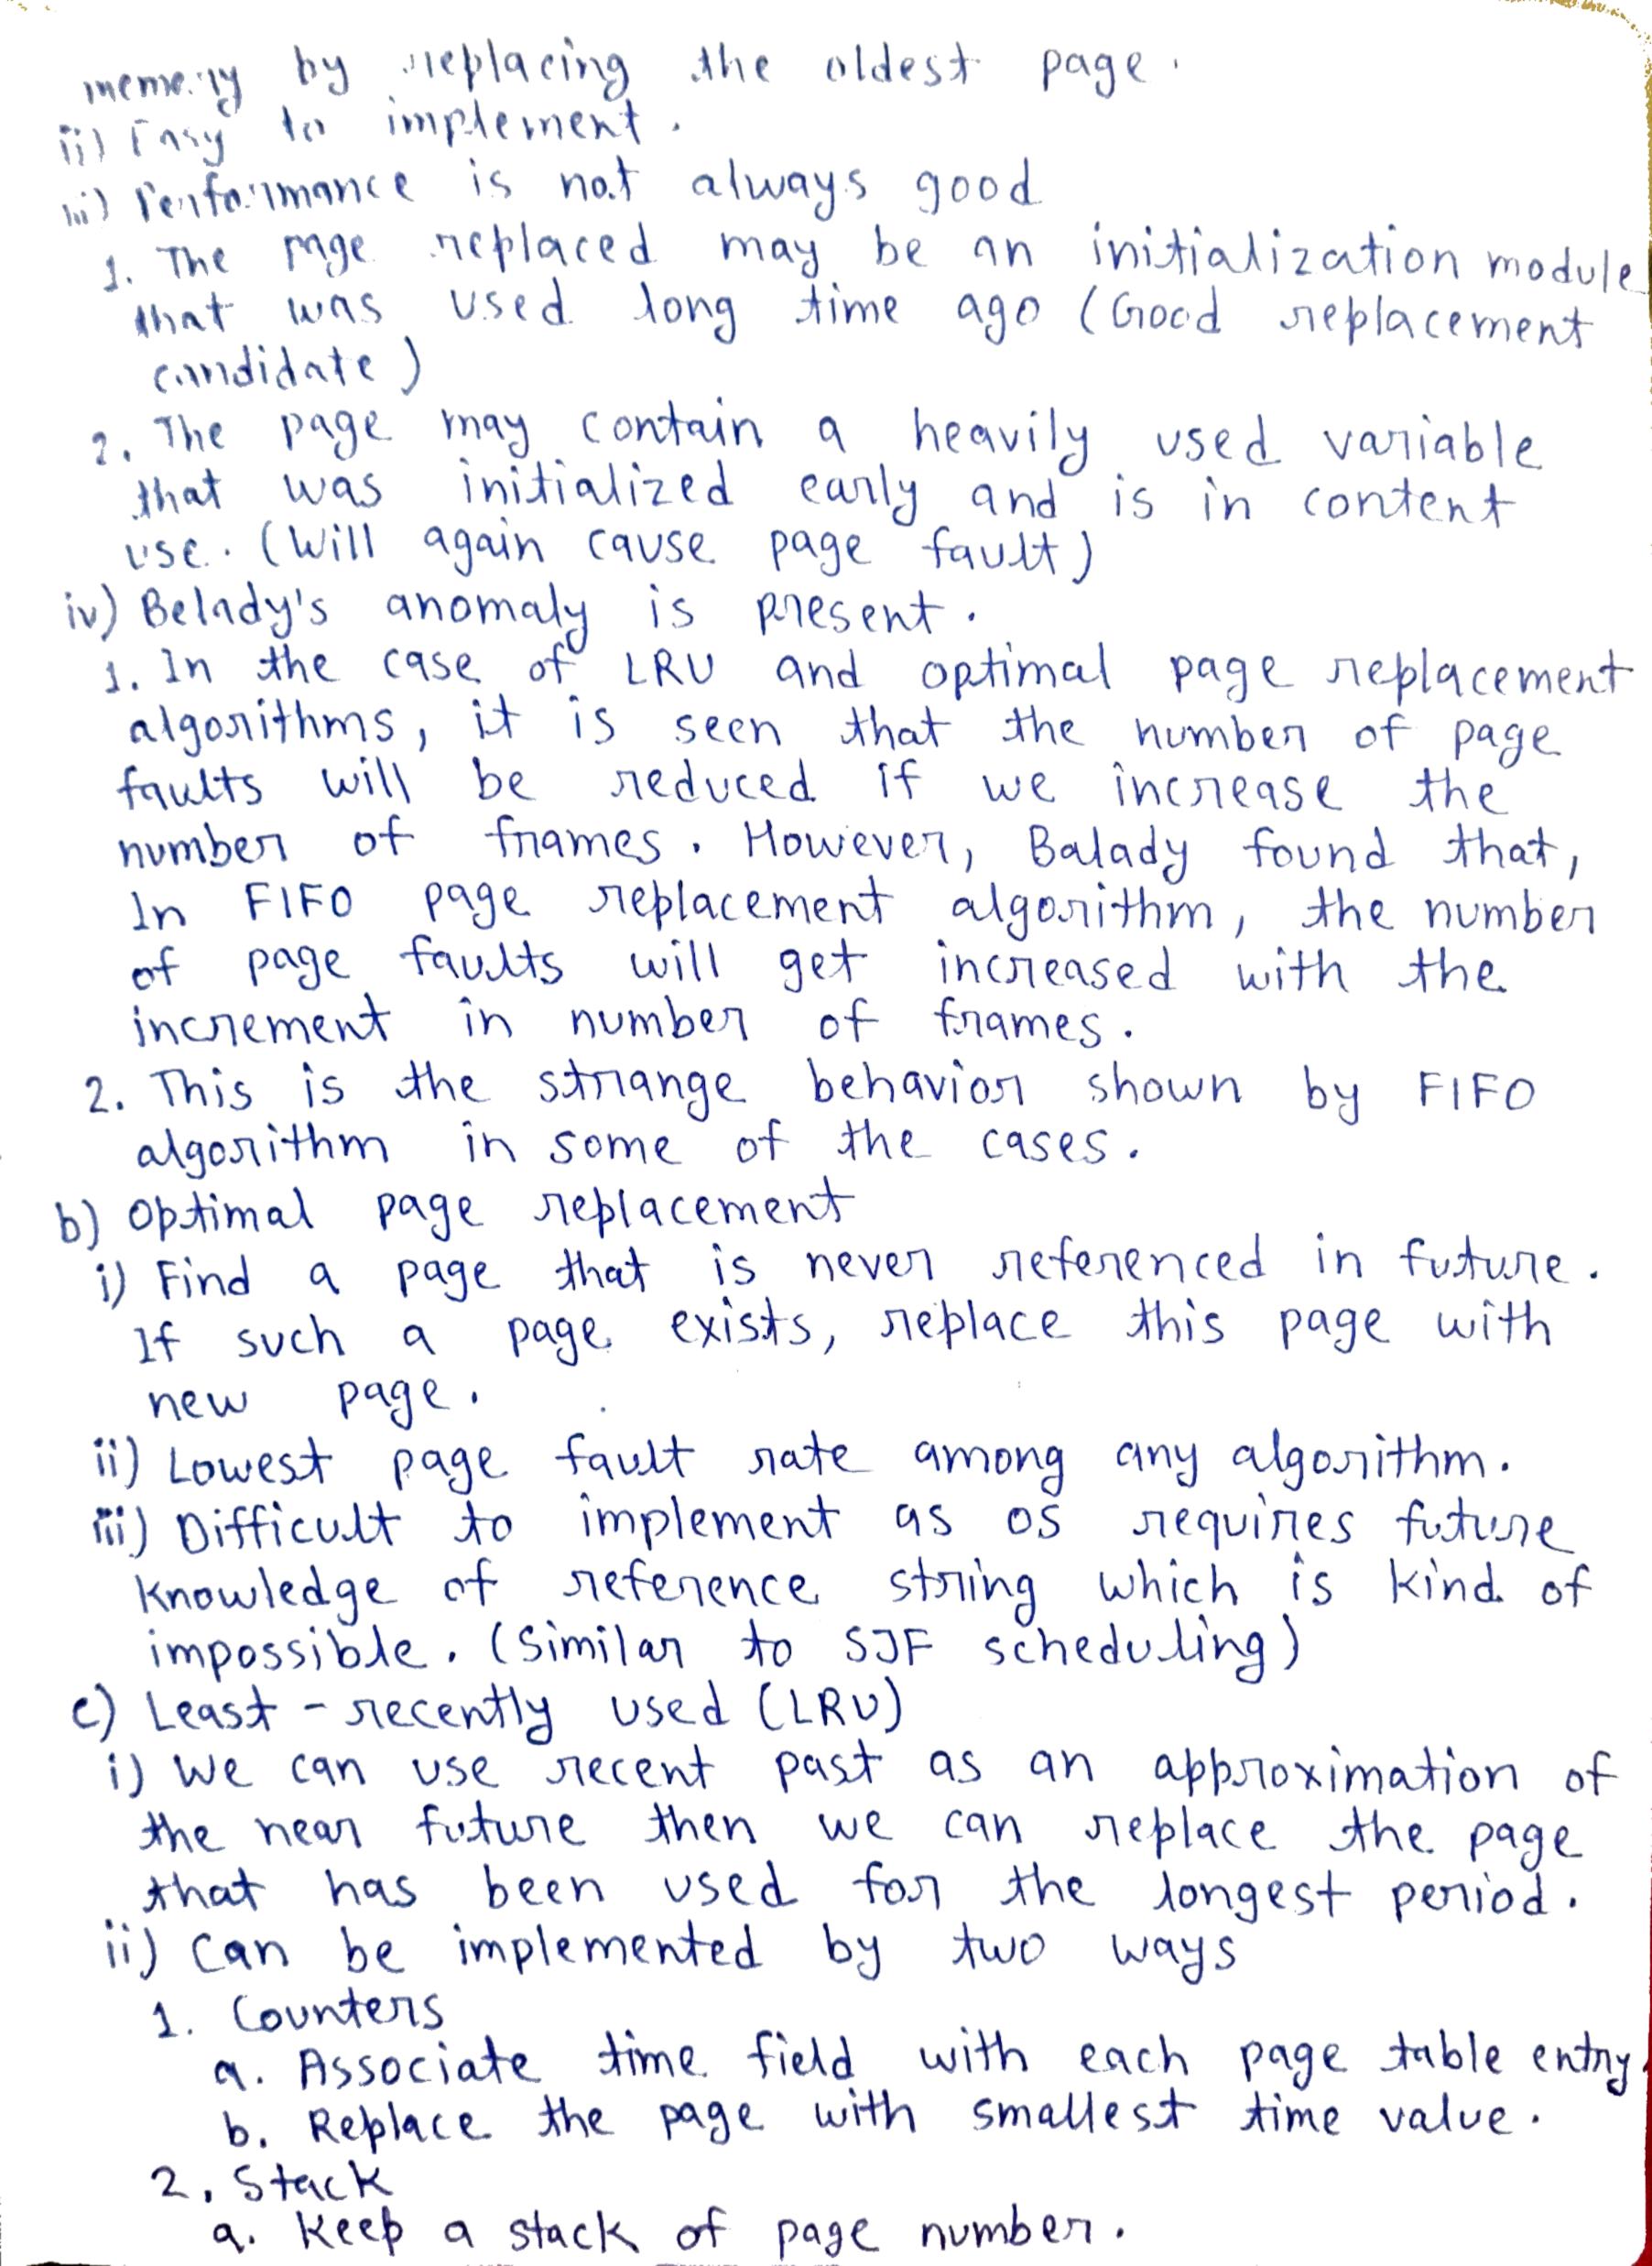 memory by replacing the oldest page.
ii) Easy to implement.
iii) Performance is not always good
1. The page replaced may be an initialization module
that was used long time ago (Good replacement
candidate)
2. The page may contain a heavily used variable
that was initialized early and is in content
use. (Will again cause page fault)
iv) Belady's anomaly is present.
1. In the case of LRU and optimal page replacement
algorithms, it is seen that the number of page
faults will be reduced if we increase the
number of frames. However, Balady found that,
In FIFO page replacement algorithm, the number
of page faults will get increased with the
increment in number of frames.
2. This is the strange behavior shown by FIFO
algorithm in some of the cases.
b) Optimal page replacement
i) Find a page that is never referenced in future.
If such a page exists, replace this page with
new page.
ii) Lowest page fault rate among any algorithm.
iii) Difficult to implement as OS requires future
knowledge of reference string which is kind of
impossible. (Similar to SJF scheduling)
c) Least-recently used (LRU)
i) We can use recent past as an approximation of
the near future then we can replace the page
that has been used for the longest period.
ii) Can be implemented by two ways
1. Counters
a. Associate time field with each page table entry.
b. Replace the page with smallest time value.
2. Stack
a. Keep a stack of page number.